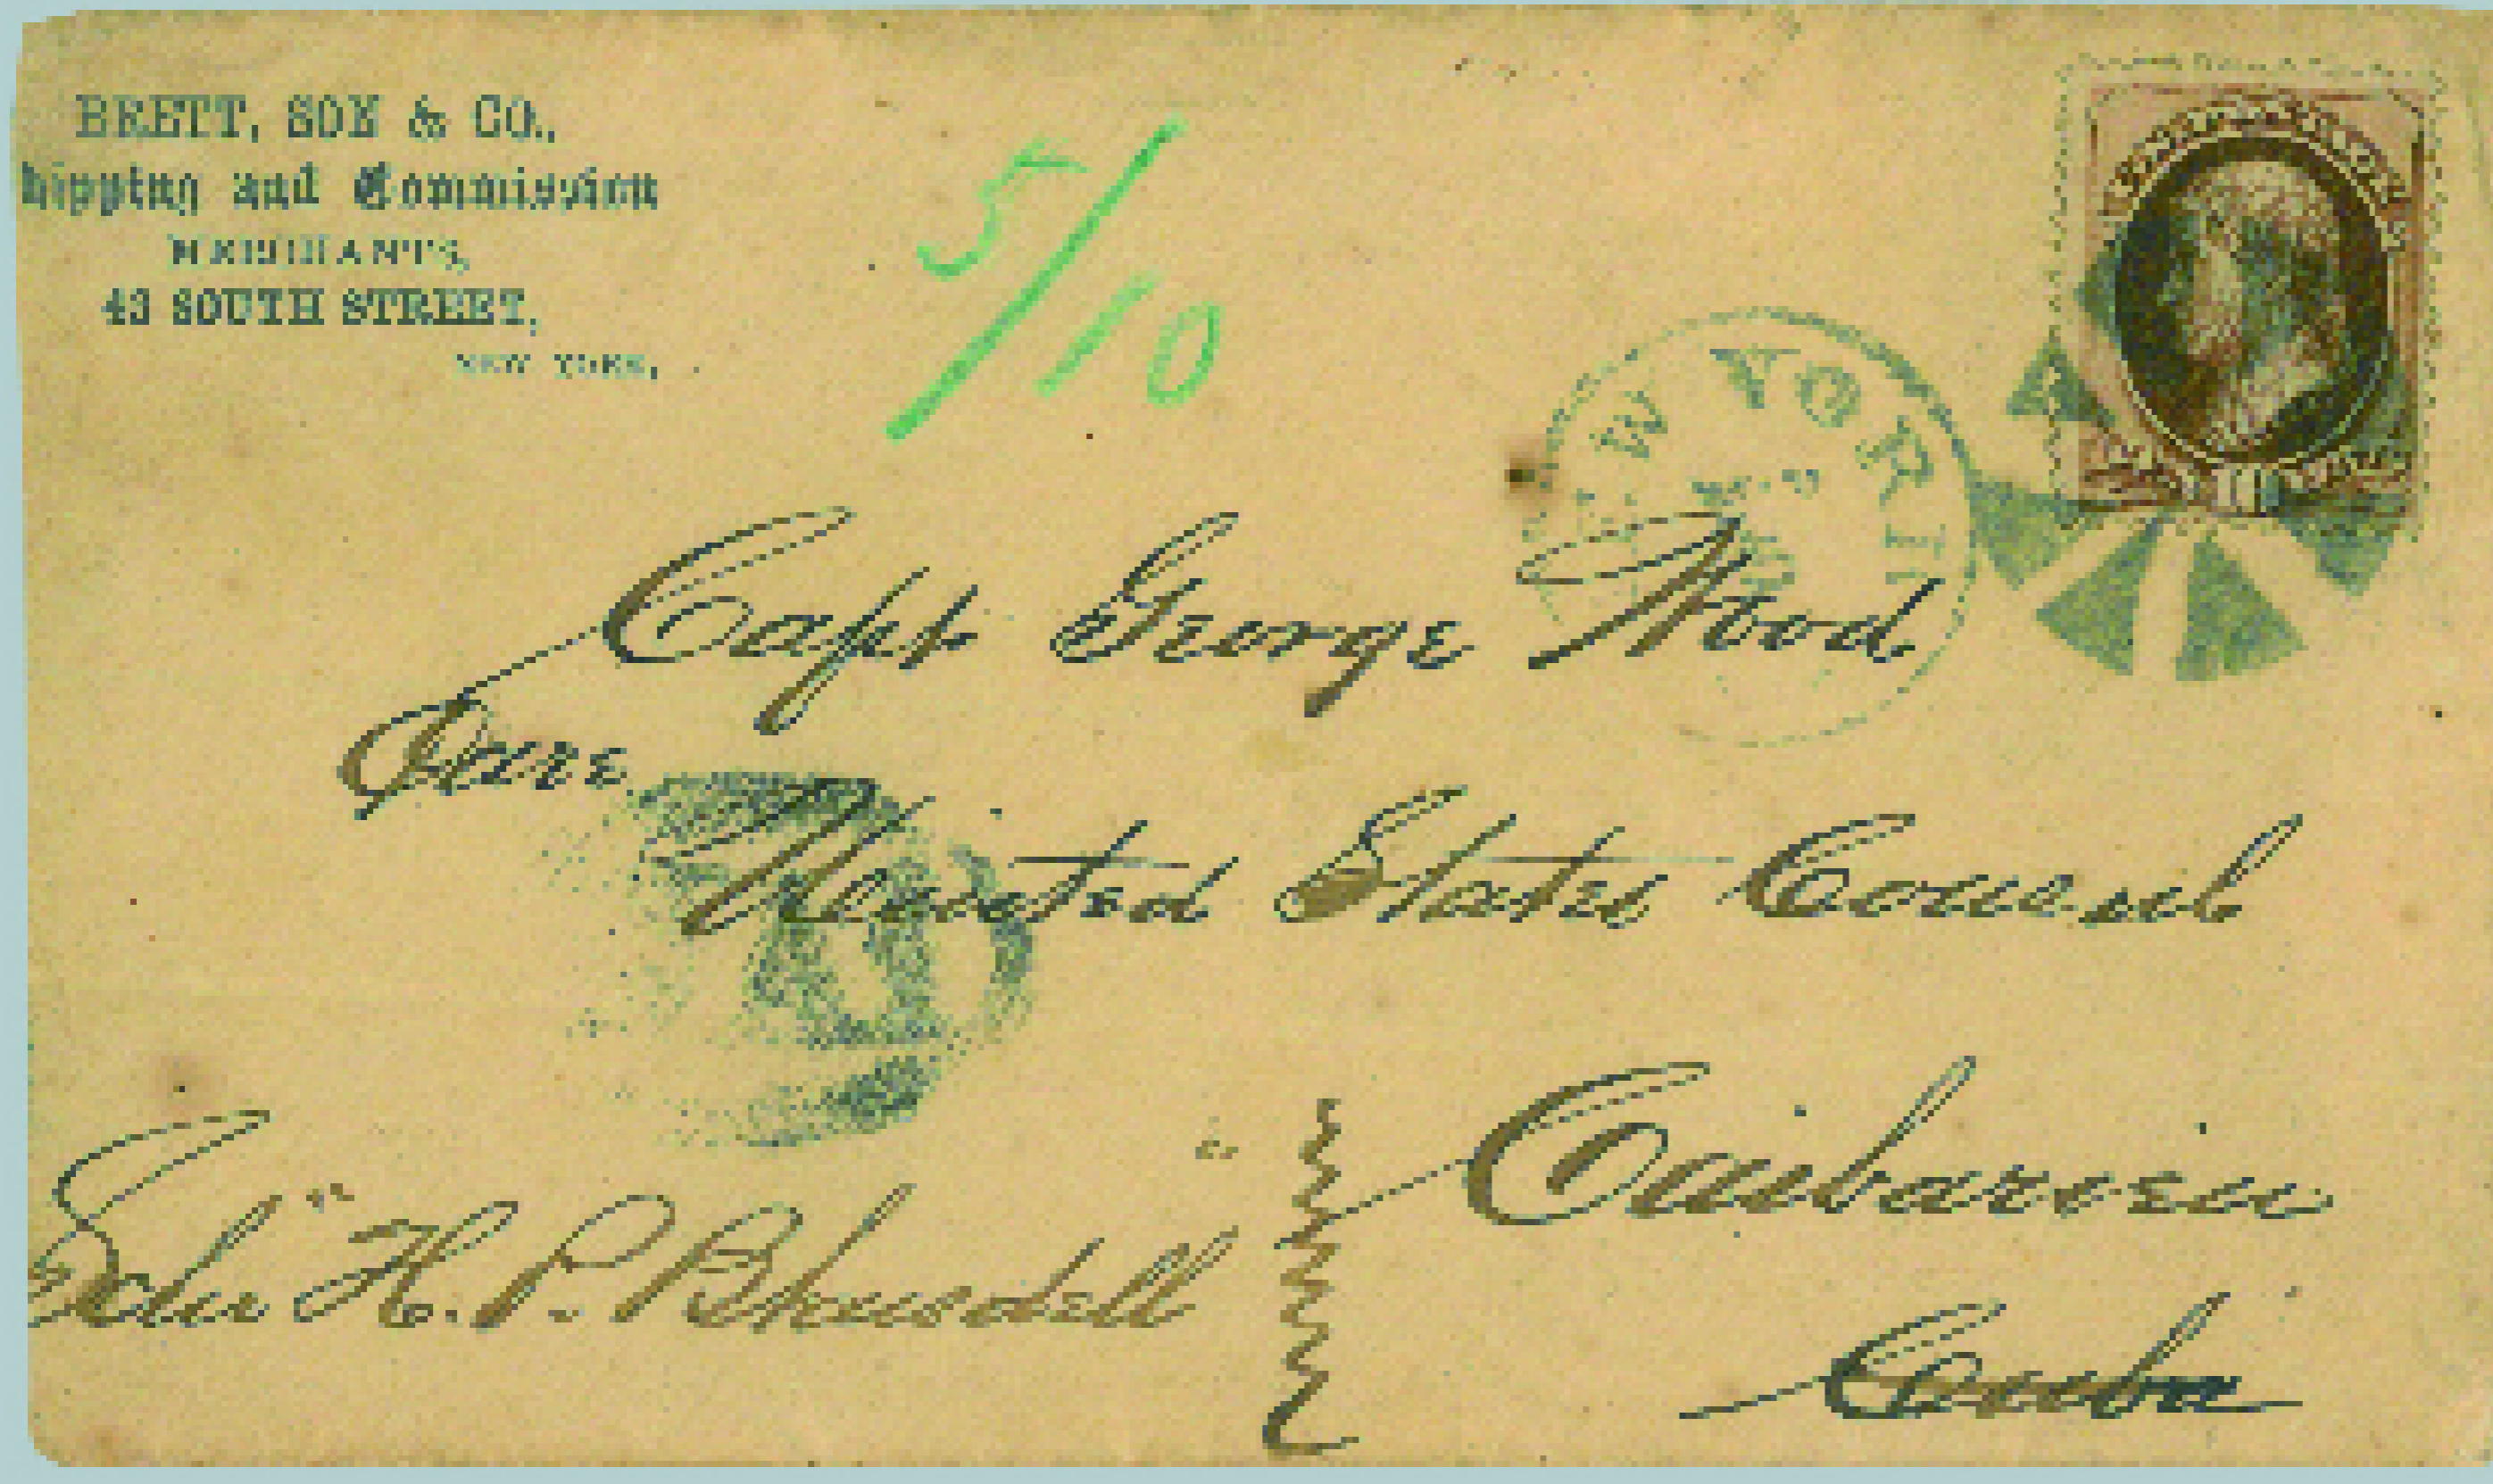 BRETT, SON & CO.,
hipping and Commission
MERCHANTS,
43 SOUTH STREET,
NEW YORK,
5/10
W YORK
Capt George Wood
Care
United States Consul
Caibarien
Cuba
Schr "H. P. Blaisdell"